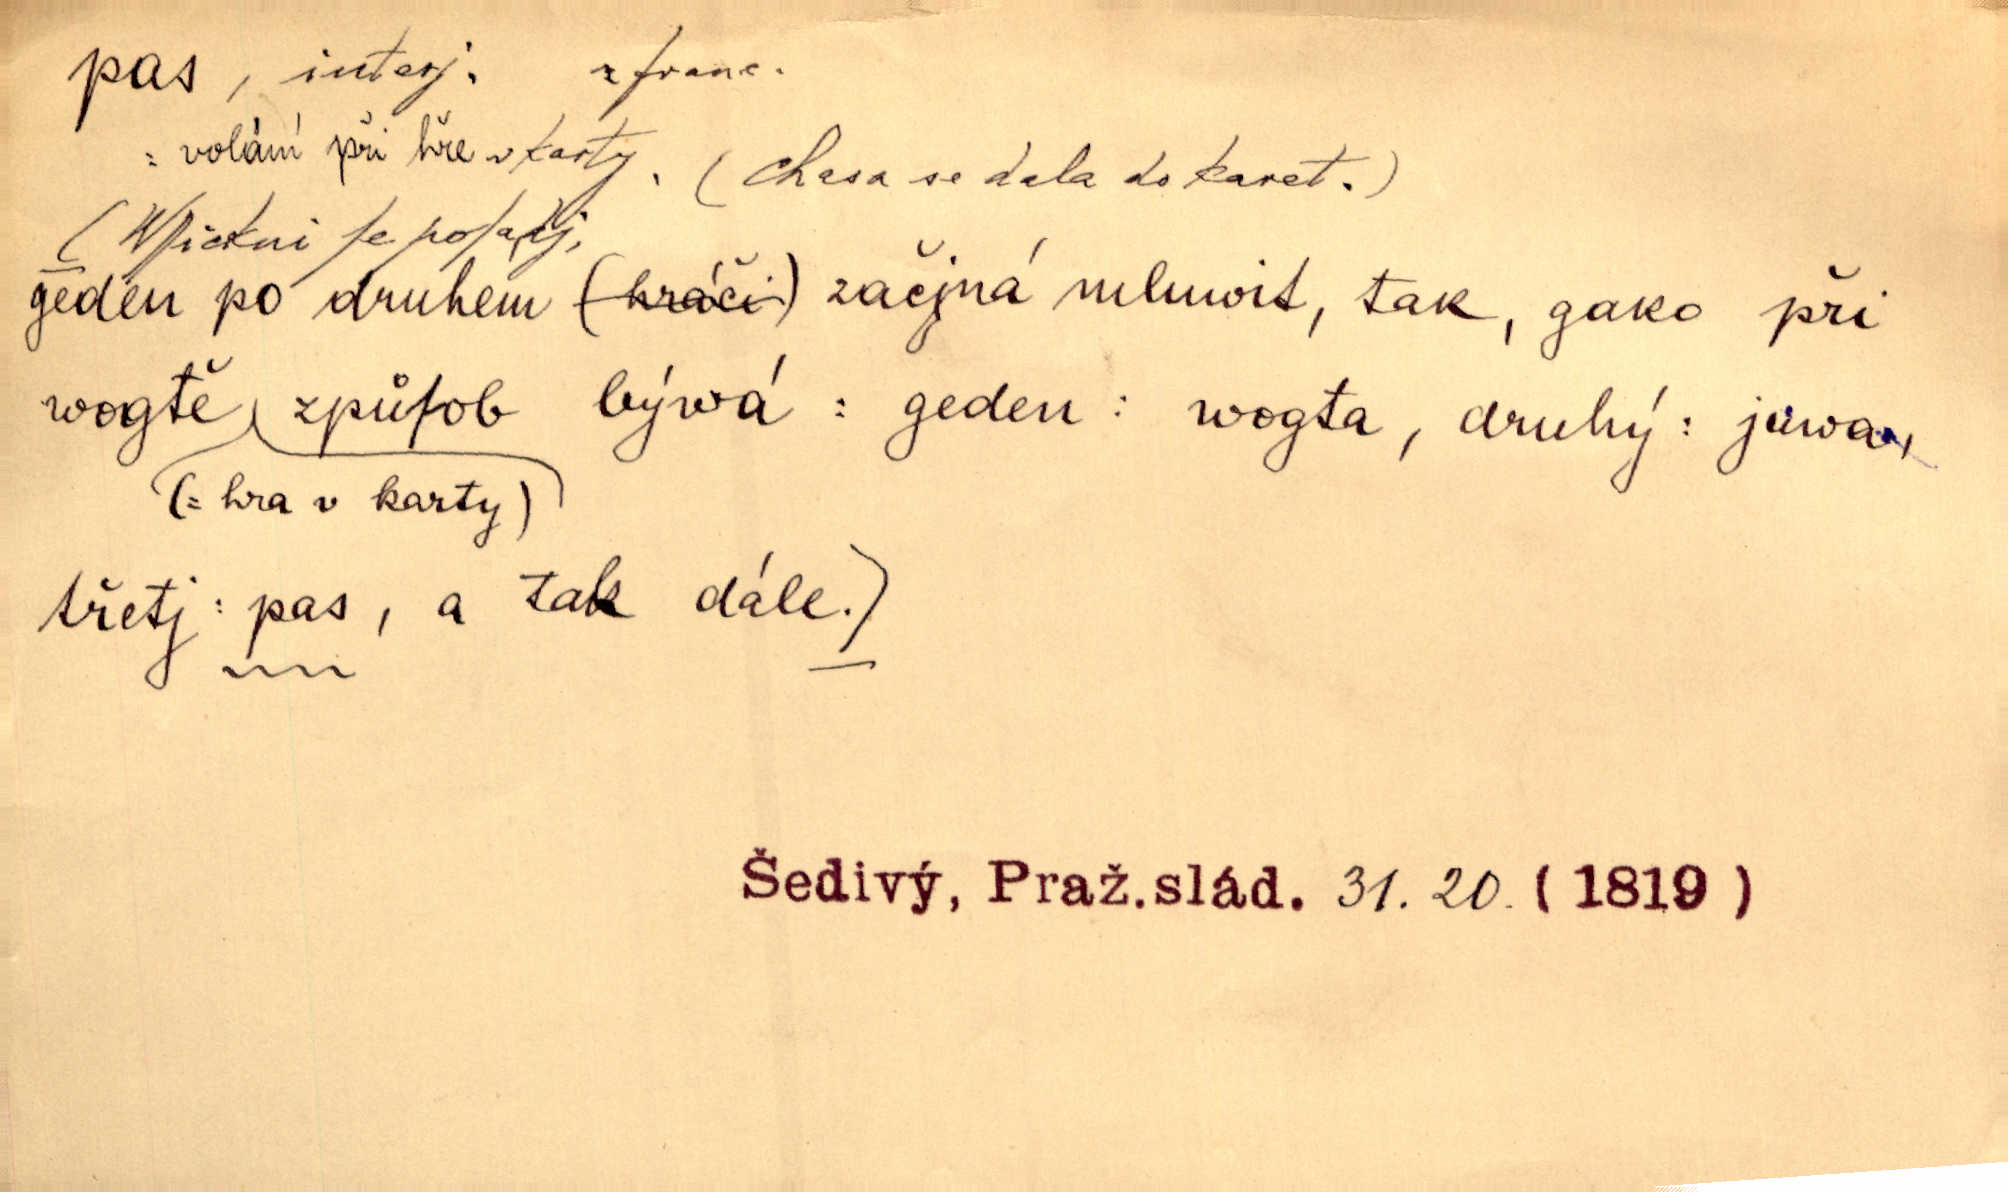 pas, interj. z franc.
= volání při hře v karty. (Chasa se dala do karet.)
(Wſickni ſe poſadj,
geden po druhém (hráči) začjná mluwit, tak, gako při
wogtě způſob býwá: geden: wogta, druhý: juwa,
(= hra v karty)
třetj: pas, a tak dále.)
Šedivý, Praž.slád. 31. 20. (1819)